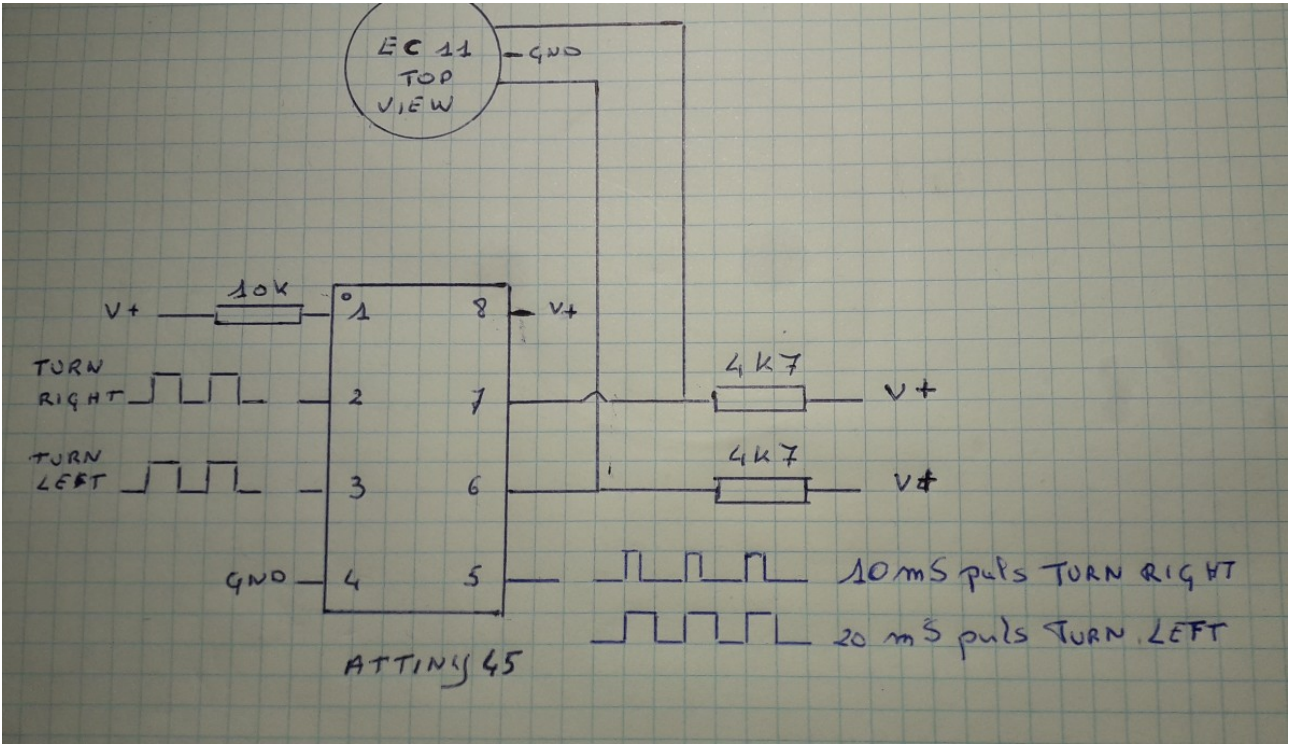 EC 11
GND
TOP
VIEW
10K
V+
1
8
V+
TURN
RIGHT
2
7
4K7
V+
TURN
LEFT
3
6
4K7
V+
GND
4
5
10 mS puls TURN RIGHT
20 mS puls TURN LEFT
ATTINY 45